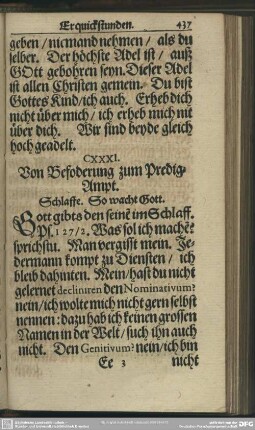 Erquickstunden. 437
geben / niemand nehmen / als du
selber. Der höchste Adel ist / auß
GOtt gebohren seyn. Dieser Adel
ist allen Christen gemein. Du bist
Gottes Kind / ich auch. Erheb dich
nicht über mich / ich erheb mich nit
über dich. Wir sind beyde gleich
hoch geadelt.
CXXXI.
Von Beföderung zum Predig-
Ampt.
Schlaffe. So wacht Gott.
Gott gibts den seinē im Schlaff.
Ps. 127/2. Was sol ich machē?
sprichstu. Man vergisst mein. Je-
dermann kompt zu Diensten / ich
bleib dahinten. Mein / hast du nicht
gelernet decliniren den Nominativum?
nein / ich wolte mich nicht gern selbst
nennen: dazu hab ich keinen grossen
Namen in der Welt / such ihn auch
nicht. Den Genitivum? nein / ich bin
Ee 3 nicht